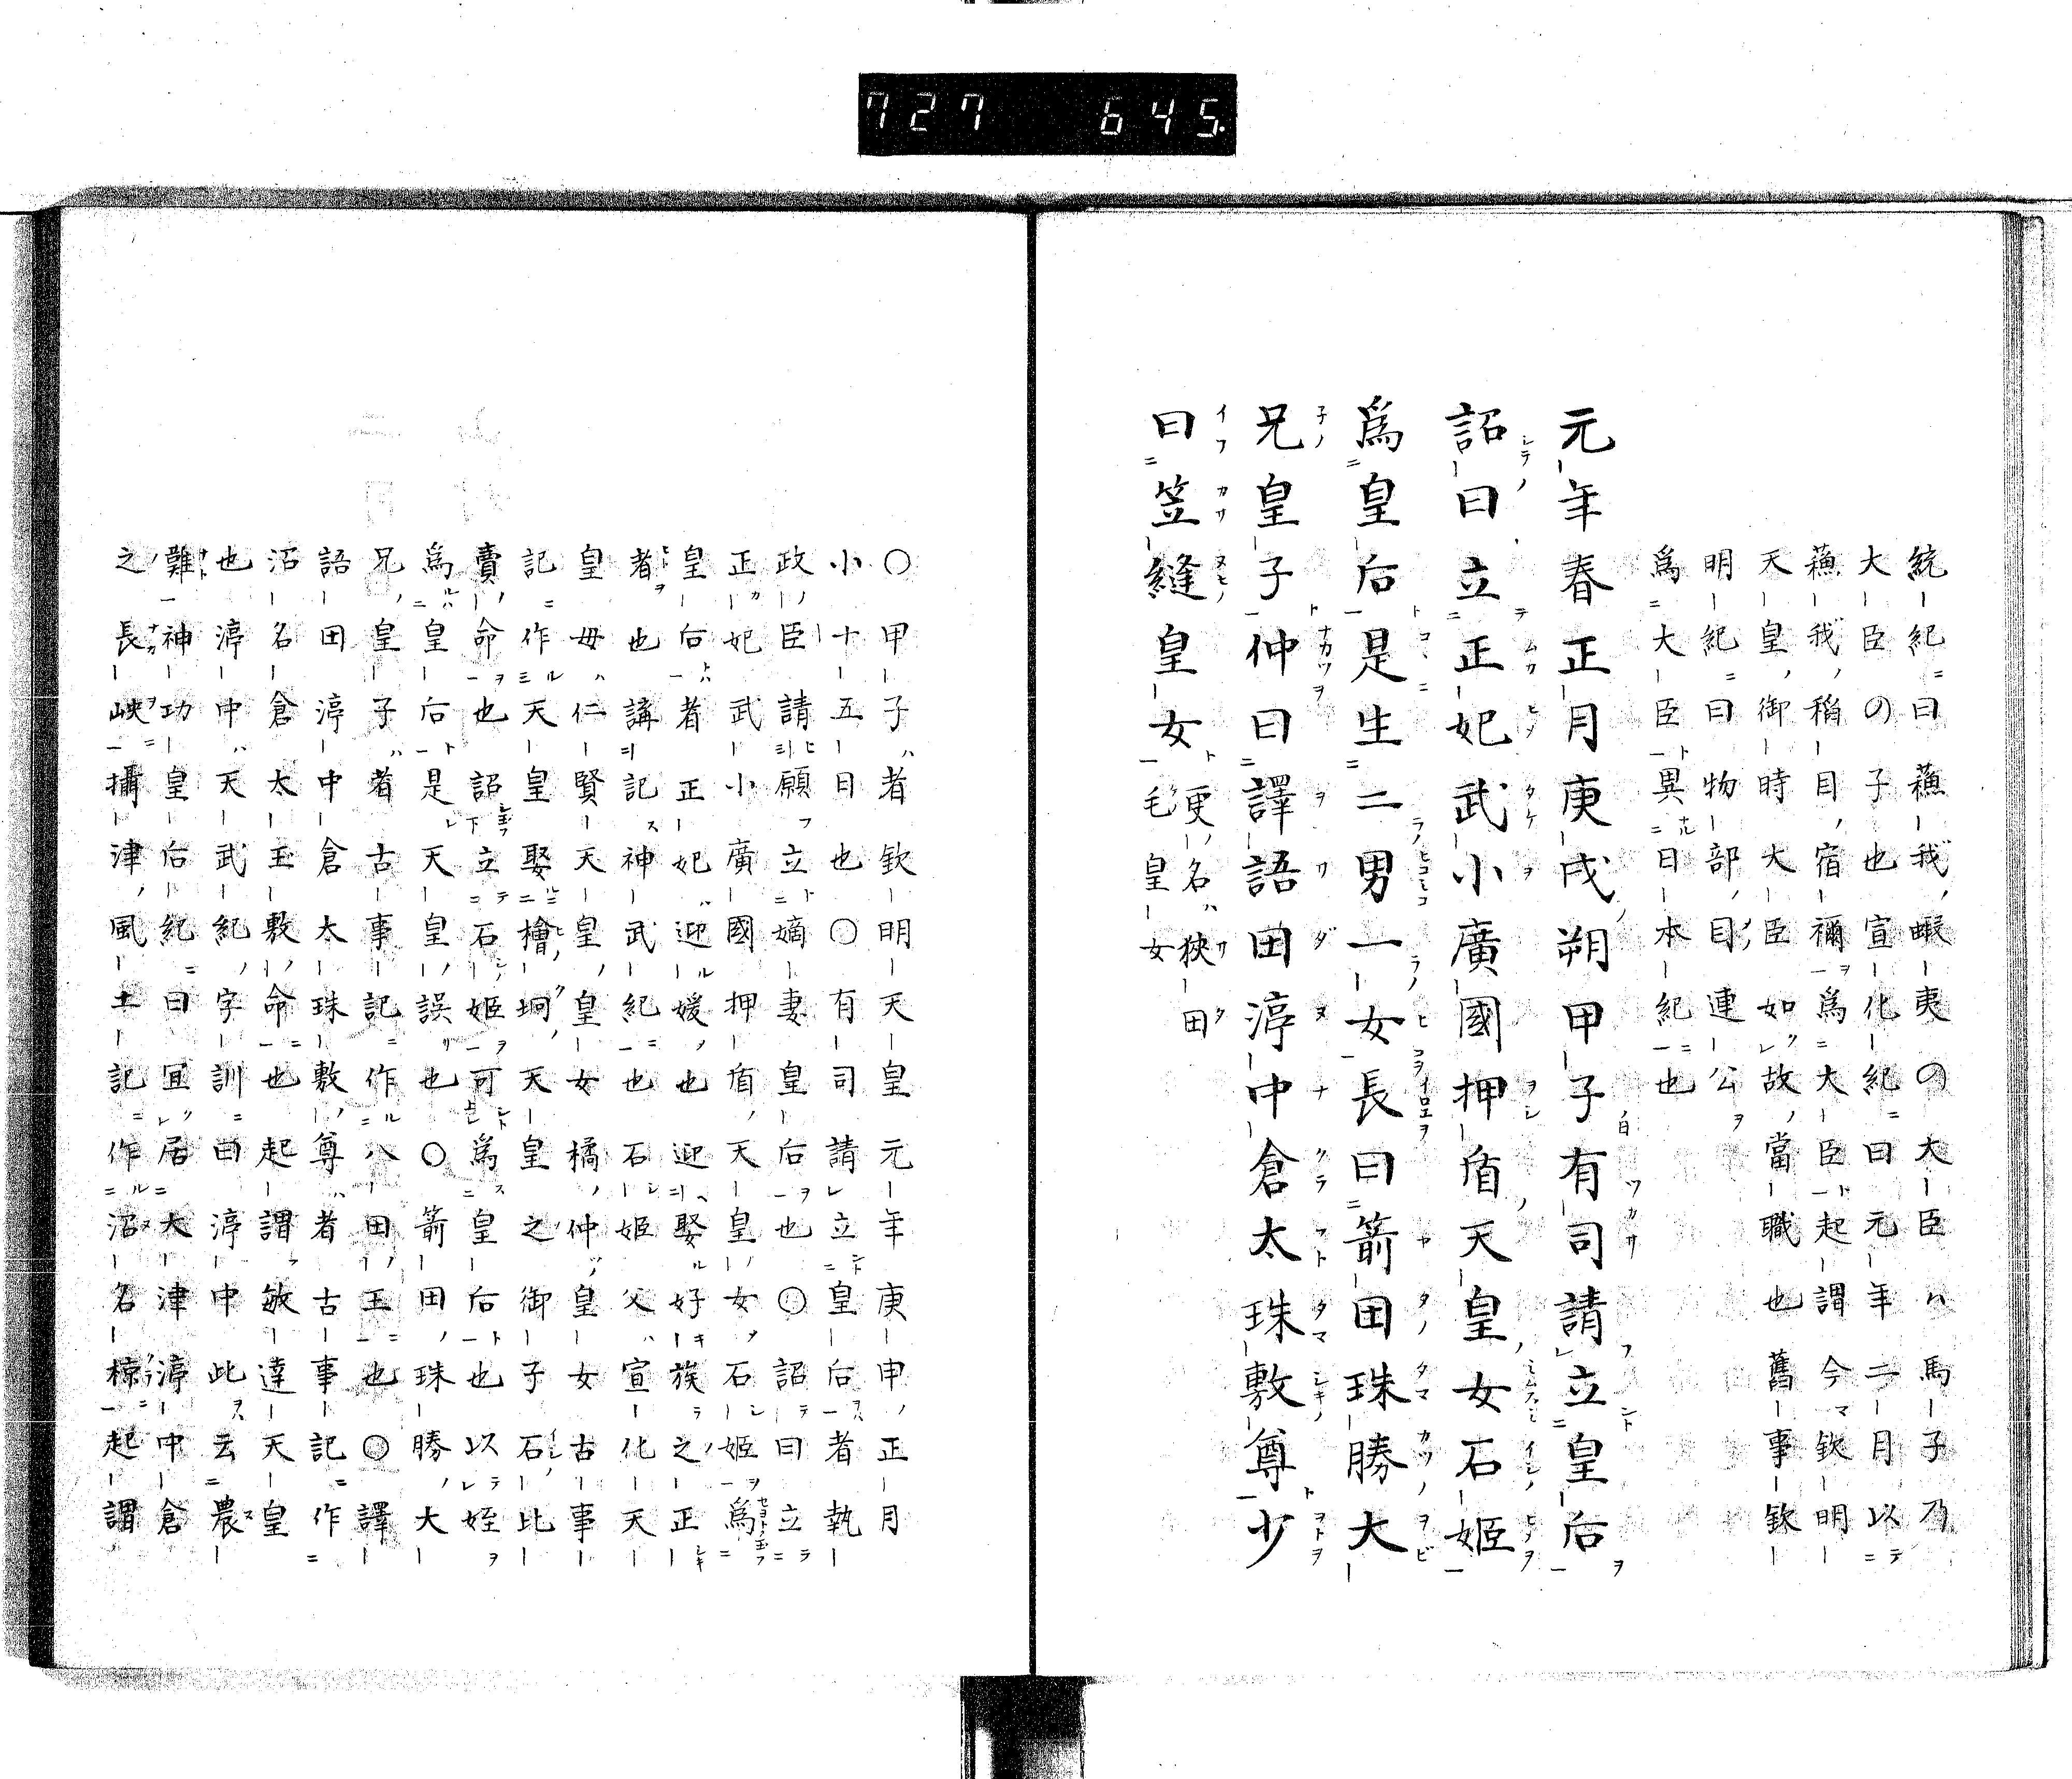 727 645.
統紀曰蘓我蝦夷の大臣ハ馬子乃
大臣の子也宣化紀曰元年二月以
蘓我稲目宿禰為大臣起謂今欽明
天皇御時大臣如故當職也舊事欽
明紀曰物部目連公
為大臣異日本紀也
元年春正月庚戌朔甲子有司請立皇后
詔曰立正妃武小廣國押盾天皇女石姬
為皇后是生二男一女長曰箭田珠勝大
兄皇子仲曰譯語田渟中倉太珠敷尊少
曰笠縫皇女更名狹田毛皇女
〇甲子者欽明天皇元年庚申正月
小十五日也〇有司請立皇后者執
政臣請願立嫡妻皇后也〇詔曰立
正妃武小廣國押盾天皇女石姬為
皇后者正妃迎媛也迎娶好族之正
者也講記神武紀也石姬父宣化天
皇母仁賢天皇皇女橘仲皇女古事
記作天皇娶檜坰天皇之御子石比
賣命也詔立石姬可為皇后也以姪
為皇后是天皇誤也〇箭田珠勝大
兄皇子者古事記作八田王也〇譯
語田渟中倉太珠敷尊者古事記作
沼名倉太玉敷命也起謂敏達天皇
也渟中天武紀字訓曰渟中此云農
難神功皇后紀曰冝居大津渟中倉
之長峽攝津風土記作沼名椋起謂